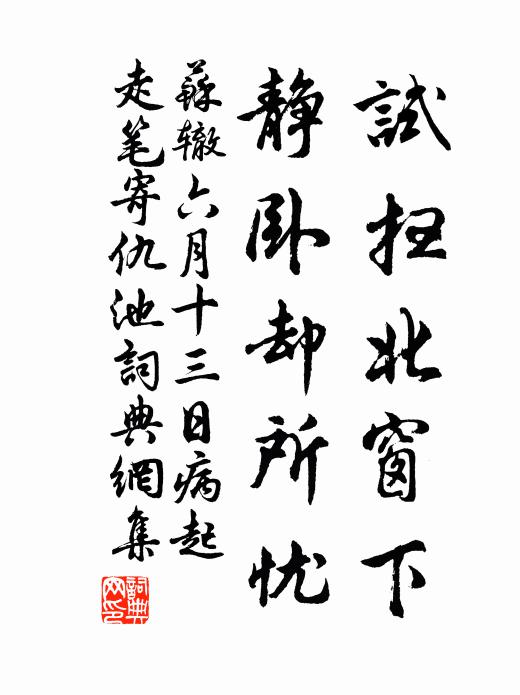 試扫北窗下
静卧却所忧
蘇辙六月十三日病起
走笔寄仇池詞典網集
詞典网印